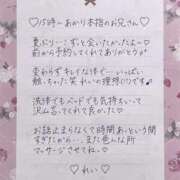 ♡15時〜あかり本指のお兄さん♡
夏ぶり…!ずっと会いたかったよ〜♡
前から予約してくれてありがとうっ♡
変わらずキレイな体で…いっぱい
触っちゃった笑 れいの理想♡です
洗体でもベッドでも気持ちくて
沢山 てくれて良かった♡
お話止まらなくて時間あっという間
すぎたから…また色んな所
マッサージさせてね〜♡
♡れい♡